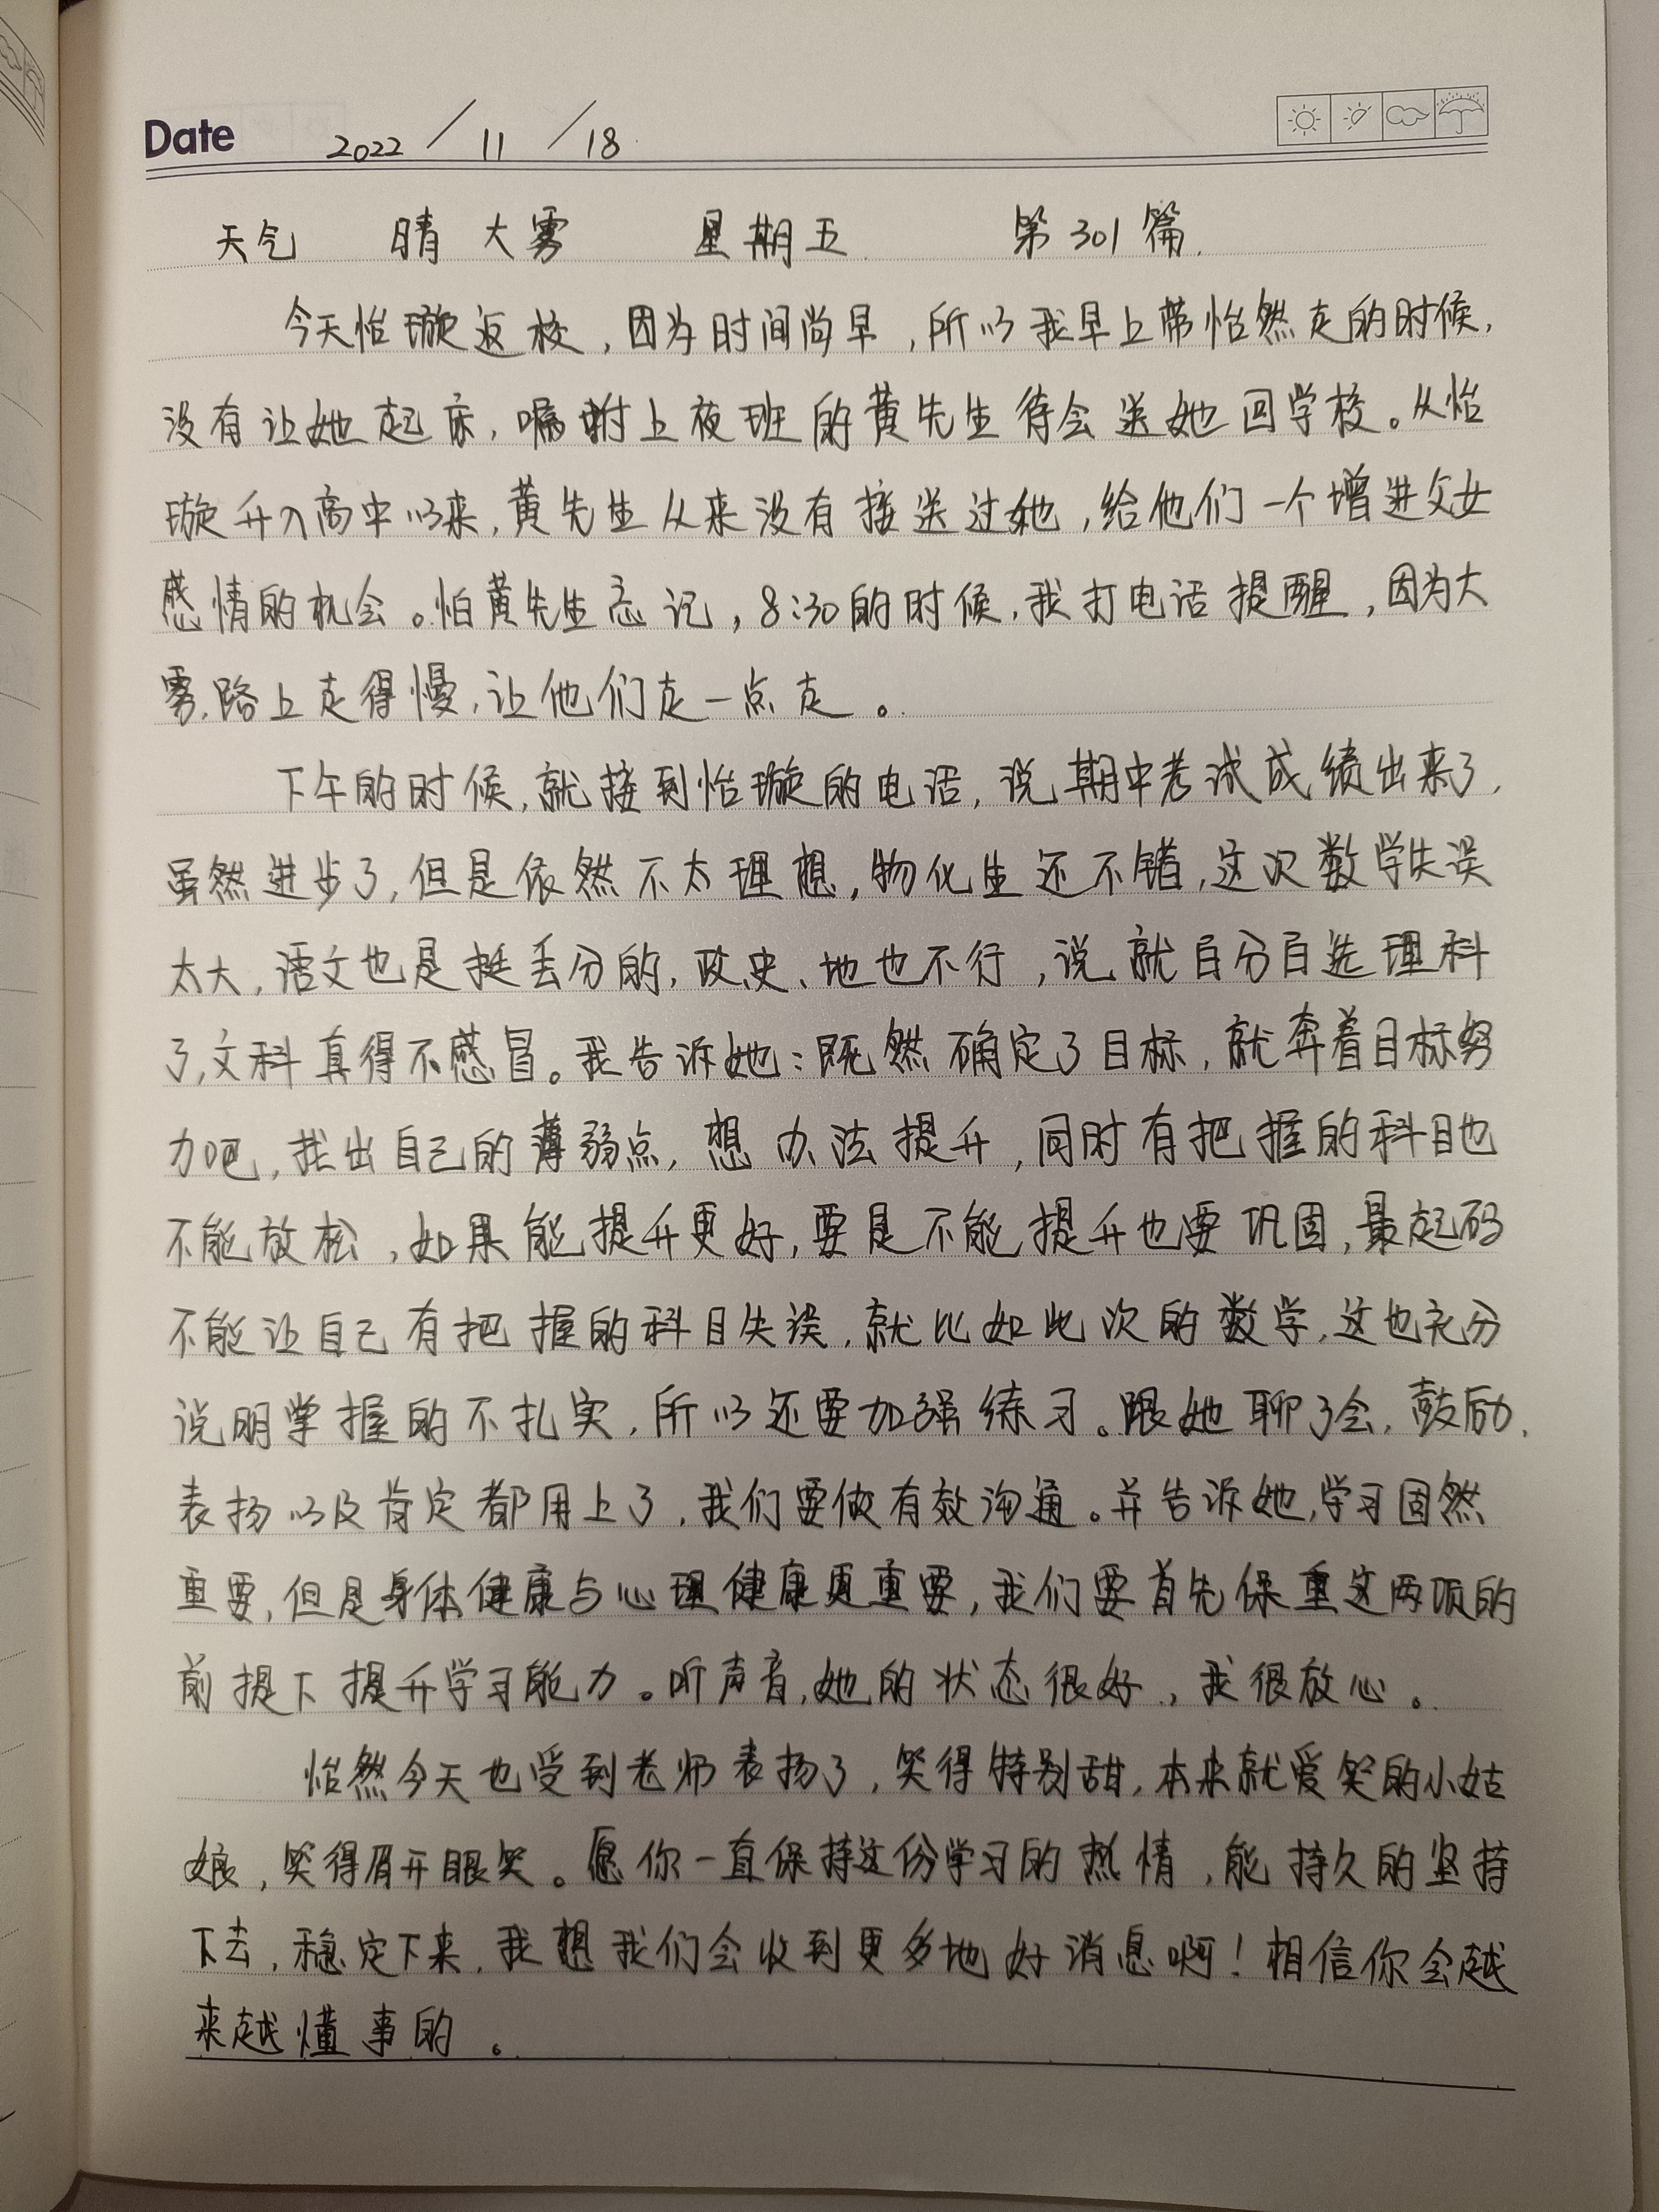 Date 2022 / 11 / 18
天气 晴 大雾 星期五 第301篇.
今天怡璇返校,因为时间尚早,所以我早上带怡然走的时候,
没有让她起床,嘱咐上夜班的黄先生待会送她回学校。从怡
璇升入高中以来,黄先生从来没有接送过她,给他们一个增进父女
感情的机会。怕黄先生忘记,8:30的时候,我打电话提醒,因为大
雾,路上走得慢,让他们走一点走。
下午的时候,就接到怡璇的电话,说期中考试成绩出来了,
虽然进步了,但是依然不太理想,物化生还不错,这次数学失误
太大,语文也是挺丢分的,政、史、地也不行,说就自分自选理科
了,文科真得不感冒。我告诉她:既然确定了目标,就奔着目标努
力吧,找出自己的薄弱点,想办法提升,同时有把握的科目也
不能放松,如果能提升更好,要是不能提升也要巩固,最起码
不能让自己有把握的科目失误,就比如此次的数学,这也充分
说明掌握的不扎实,所以还要加强练习。跟她聊了会,鼓励、
表扬以及肯定都用上了,我们要做有效沟通。并告诉她,学习固然
重要,但是身体健康与心理健康更重要,我们要首先保重这两项的
前提下提升学习能力。听声音,她的状态很好,我很放心。
怡然今天也受到老师表扬了,笑得特别甜,本来就爱笑的小姑
娘,笑得眉开眼笑。愿你一直保持这份学习的热情,能持久的坚持
下去,稳定下来,我想我们会收到更多地好消息啊!相信你会越
来越懂事的。